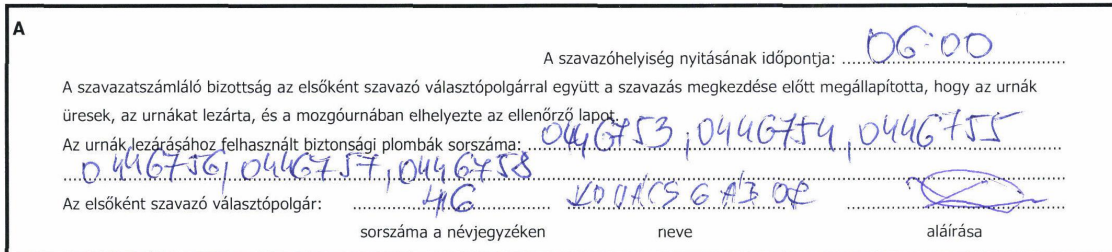 A
A szavazóhelyiség nyitásának időpontja: 06:00
A szavazatszámláló bizottság az elsőként szavazó választópolgárral együtt a szavazás megkezdése előtt megállapította, hogy az urnák
üresek, az urnákat lezárta, és a mozgóurnában elhelyezte az ellenőrző lapot.
Az urnák lezárásához felhasznált biztonsági plombák sorszáma: 0446753, 0446754, 0446755
0446756, 0446757, 0446758
Az elsőként szavazó választópolgár: 416 KOVÁCS GÁBOR
sorszáma a névjegyzéken neve aláírása